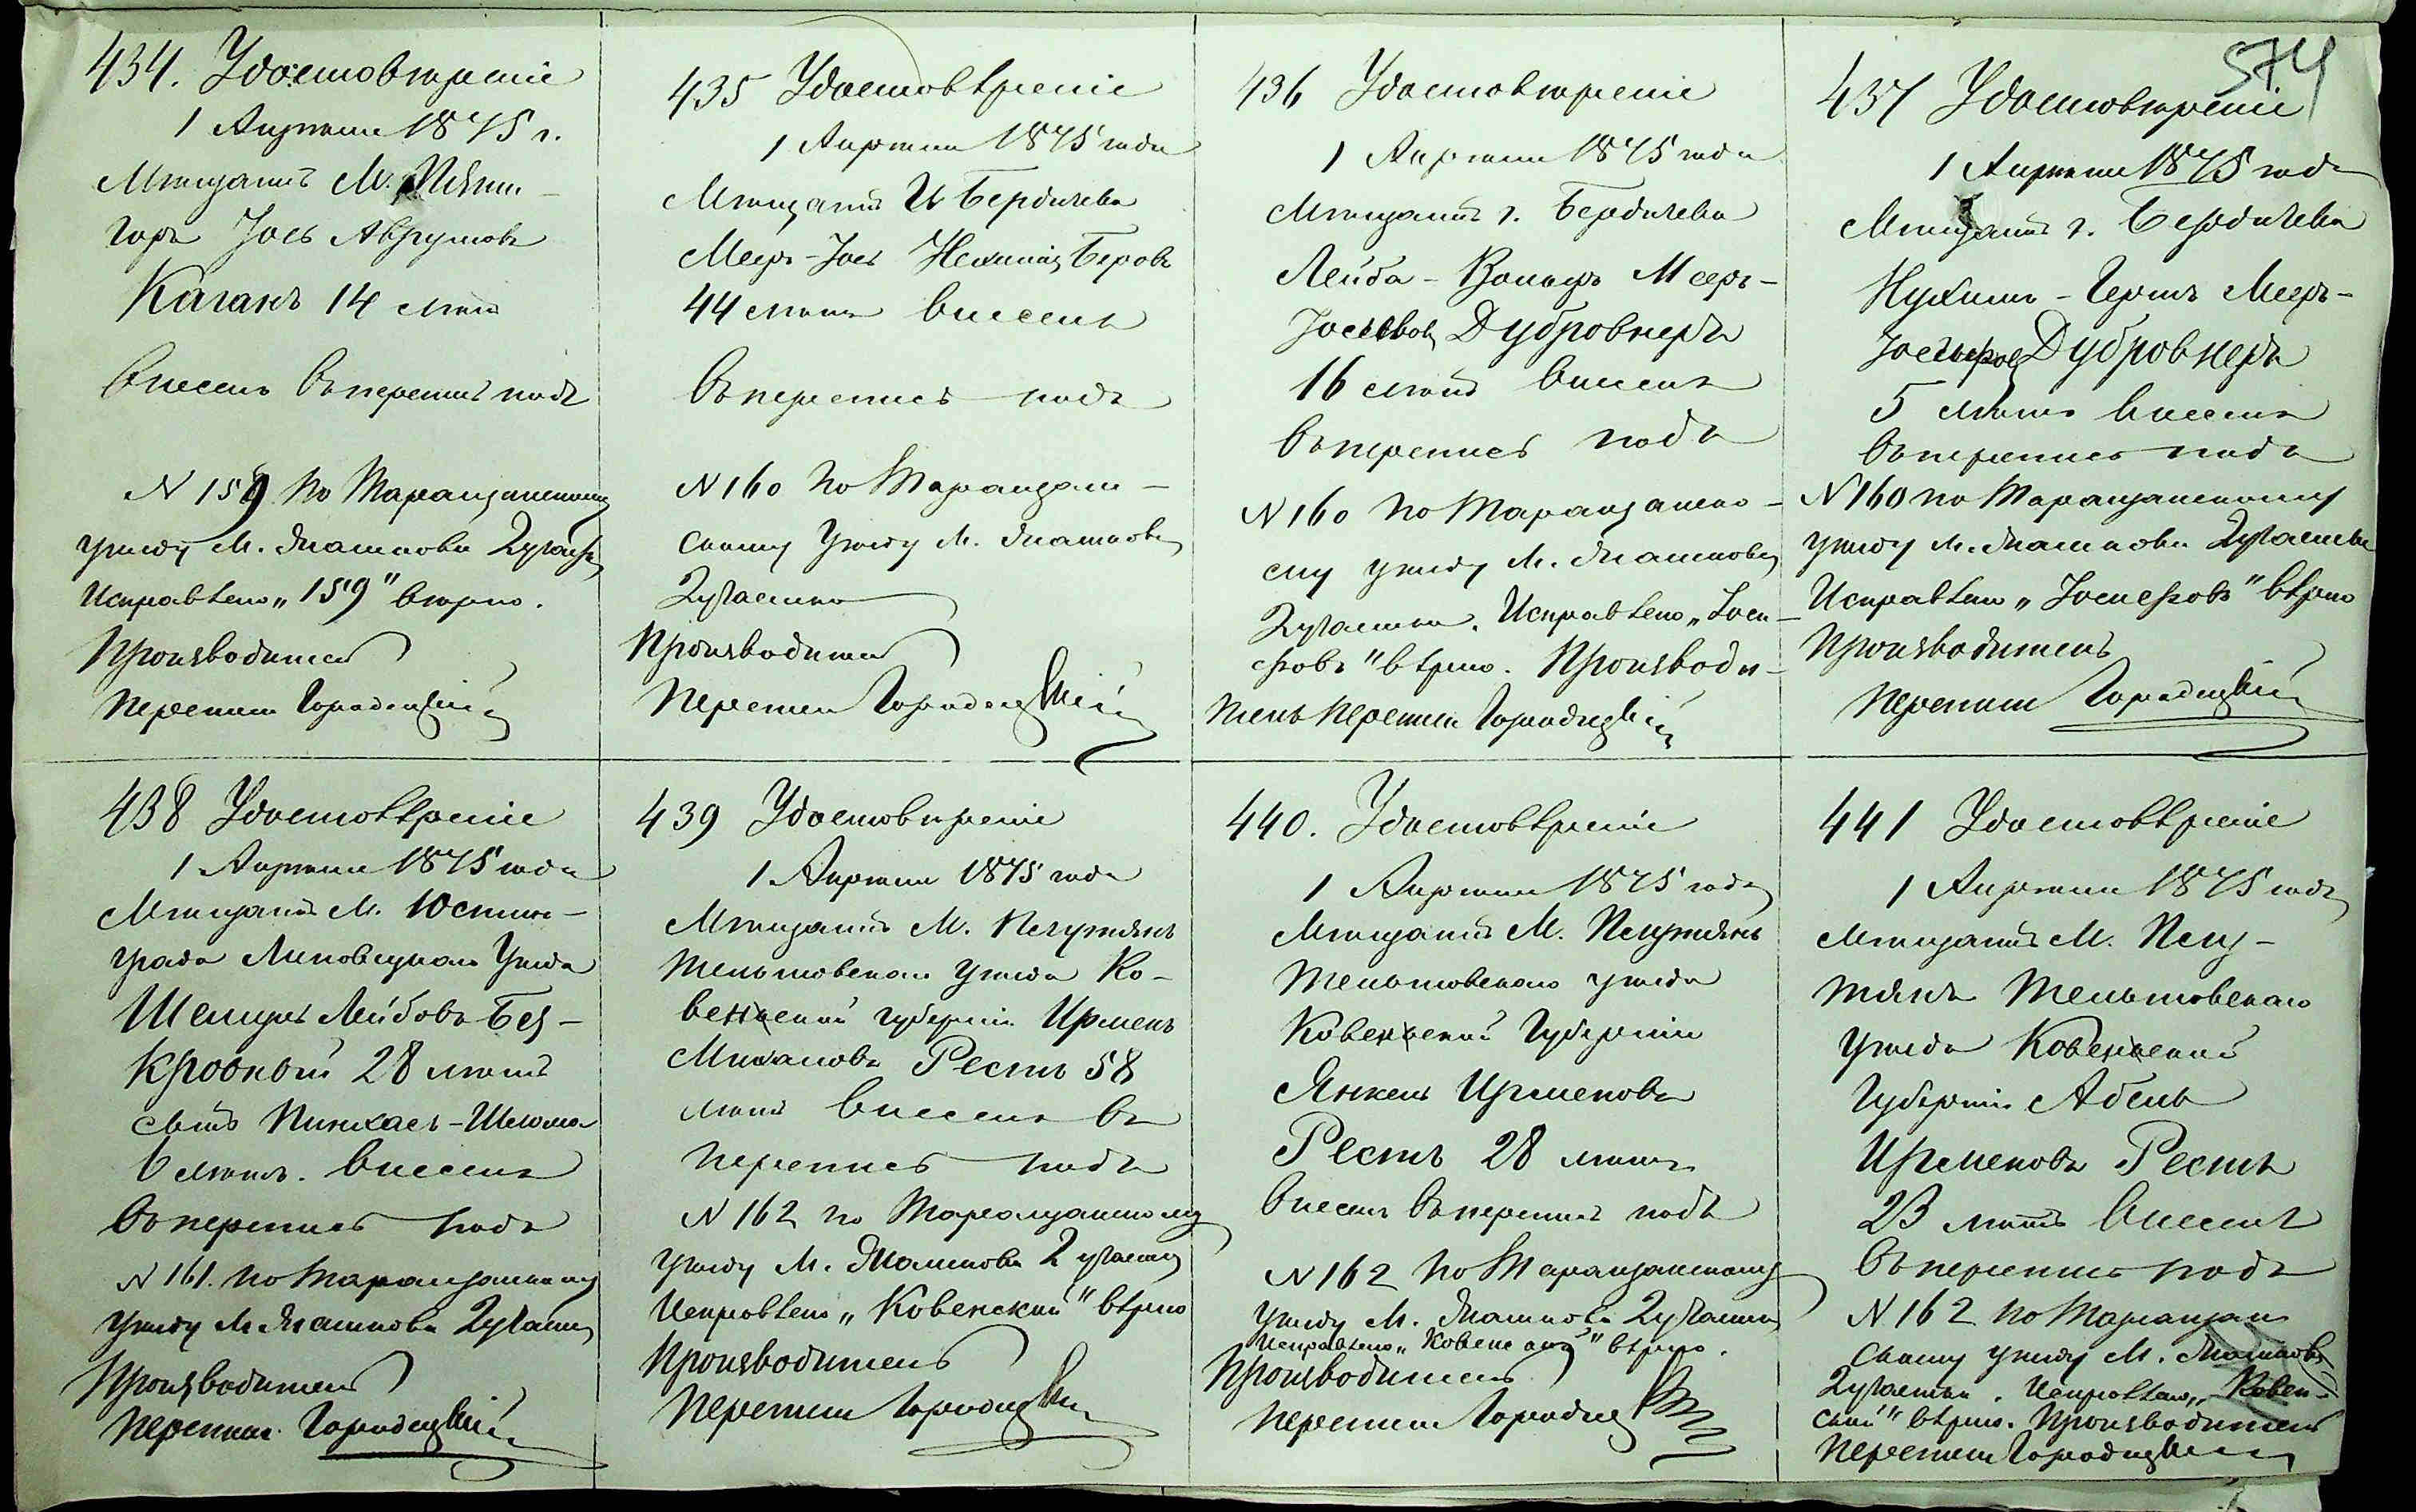 574
434. Удостовѣреніе
1 Апрѣля 1875 г.
Мѣщанинъ М. Пяти-
горъ Іось Аврумовъ
Каганъ 14 лѣтъ
внесенъ въ перепись подъ
N 159 по Таращанскому
уѣзду М. Жашкова 2 участку
Исправлено „159" вѣрно.
Производитель
переписи Городецкій
435 Удостовѣреніе
1 Апрѣля 1875 года
Мѣщанинъ г. Бердичева
Меер-Іось Беровъ
44 лѣтъ внесенъ
въ перепись подъ
N 160 по Таращан-
скому уѣзду М. Жашкова
2 участка
Производитель
переписи Городецкій
436 Удостовѣреніе
1 Апрѣля 1875 года
Мѣщанинъ г. Бердичева
Лейба-Вольфъ Мееръ-
Іосевовъ Дубровнеръ
16 лѣтъ внесенъ
въ перепись подъ
N 160 по Таращанско-
му уѣзду М. Жашкова
2 участка. Исправлено „Іосе-
фовъ" вѣрно. Производи-
тель переписи Городецкій
437 Удостовѣреніе
1 Апрѣля 1875 года
Мѣщанинъ г. Бердичева
Нухимъ-Гершъ Мееръ-
Іосефов Дубровнеръ
5 лѣтъ внесенъ
въ перепись подъ
N 160 по Таращанскому
уѣзду М. Жашкова 2 участка
Исправлено „Іосефовъ" вѣрно
Производитель
переписи Городецкій
438 Удостовѣреніе
1 Апрѣля 1875 года
Мѣщанинъ М. Юстин-
града Липовецкаго уѣзда
Шмуль Лейбовъ Без-
кровный 28 лѣтъ
сынъ Пинхасъ-Шлома
6 лѣтъ. внесенъ
въ перепись подъ
N 161. по Таращанскому
уѣзду М. Жашкова 2 участку
Производитель
переписи Городецкій
439 Удостовѣреніе
1 Апрѣля 1875 года
Мѣщанинъ М.
Тельшовскаго уѣзда Ко-
венской губерніи Ирмень
Михаловъ Рестъ 58
лѣтъ внесенъ въ
перепись подъ
N 162 по Таращанскому
уѣзду М. Жашкова 2 участку
Исправлено „Ковенский" вѣрно
Производитель
переписи Городецкій
440. Удостовѣреніе
1 Апрѣля 1875 года
Мѣщанинъ М.
Тельшовскаго уѣзда
Ковенской Губерніи
Янкель Ирменовъ
Рестъ 28 лѣтъ
внесенъ въ перепись подъ
N 162 по Таращанскому
уѣзду М. Жашкова 2 участка
Исправлено „Ковенской" вѣрно.
Производитель
переписи Городецкій
441 Удостовѣреніе
1 Апрѣля 1875 года
Мѣщанинъ М.
Тельшовскаго
уѣзда Ковенской
Губерніи Абель
Ирменовъ Рестъ
23 лѣтъ внесенъ
въ перепись подъ
N 162 по Таращан
скому уѣзду М. Жашкова
2 участка. Исправлено „Ковен-
ской" вѣрно. Производитель
переписи Городецкій